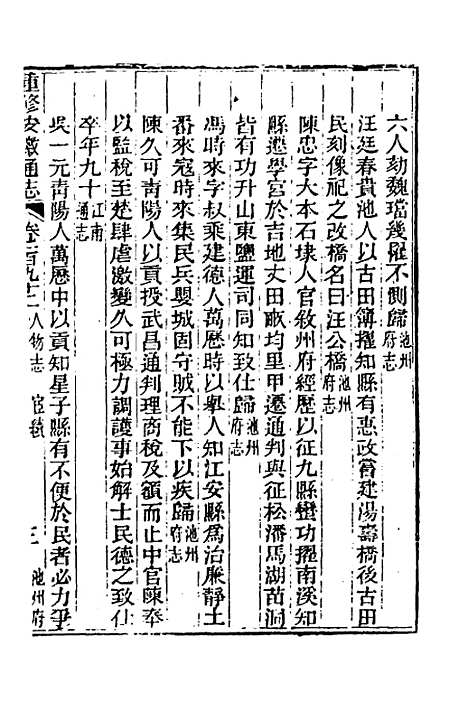 六人劾魏璫幾罹不測歸池州府志
汪廷春貴池人以古田簿擢知縣有惠政嘗建湯壽橋後古田
民刻像祀之改橋名曰汪公橋池州府志
陳忠字大本石埭人官敘州府經歷以征九縣蠻功擢南溪知
縣遷學宮於吉地丈田畝均里甲遷通判與征松潘馬湖苗洞
皆有功升山東鹽運司同知致仕歸池州府志
馮時來字叔乘建德人萬歷時以舉人知江安縣為治廉靜土
番來寇時來集民兵嬰城固守賊不能下以疾歸池州府志
陳久可青陽人以貢授武昌通判理商稅及額而止中官陳奉
以監稅至楚肆虐激變久可極力調護事始解士民德之致仕
卒年九十江南通志
吳一元青陽人萬歷中以貢知星子縣有不便於民者必力爭
重修安徽通志 卷一百九十二 人物志 宦績 三 池州府